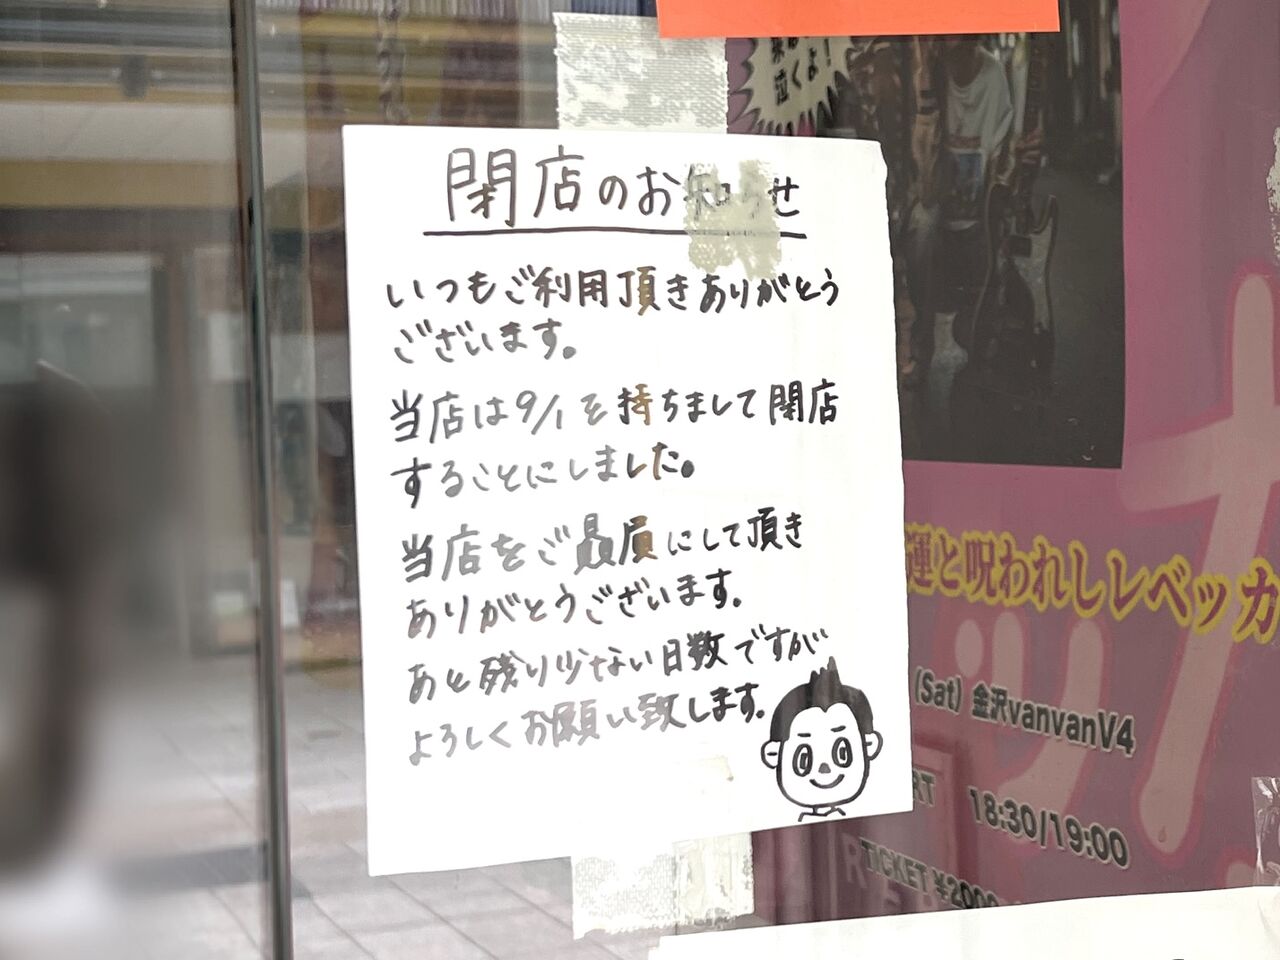 泣くよ!
閉店のお知らせ
いつもご利用頂きありがとう
ございます。
当店は9/1を持ちまして閉店
することにしました。
当店をご贔屓にして頂き
ありがとうございます。
あと残り少ない日数ですが
よろしくお願い致します。
運と呪われしレベッカ
(Sat) 金沢vanvanV4
RT 18:30/19:00
TICKET ¥2000